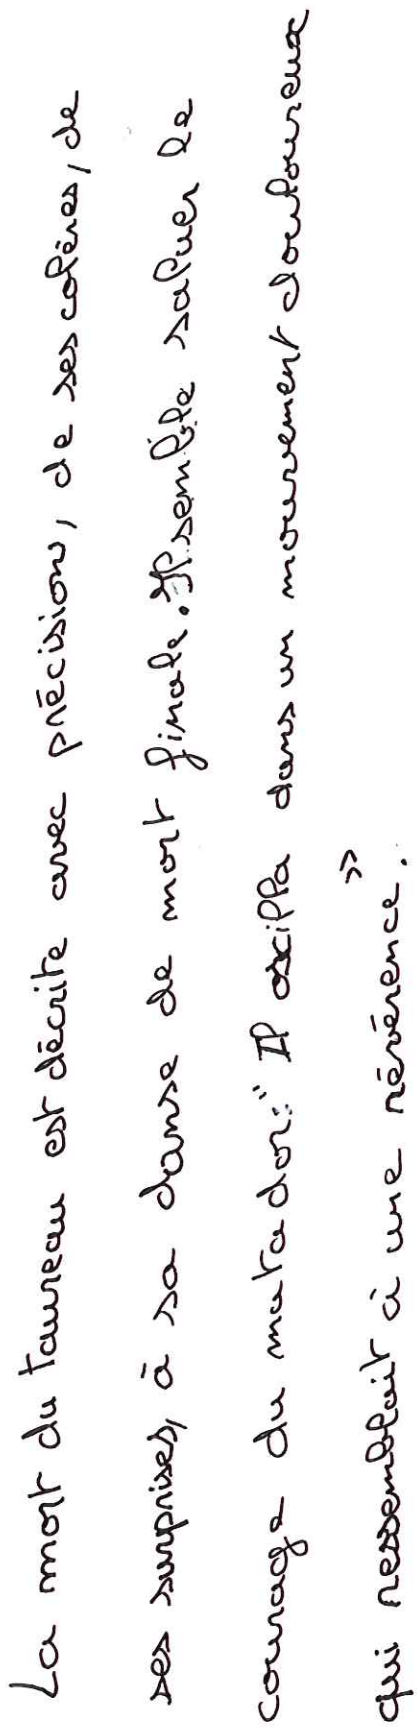 La mort du taureau est décrite avec précision, de ses colères, de
ses surprises, à sa danse de mort finale. Il semble saluer le
courage du matador: " Il oscilla dans un mouvement douloureux
qui ressemblait à une révérence. »